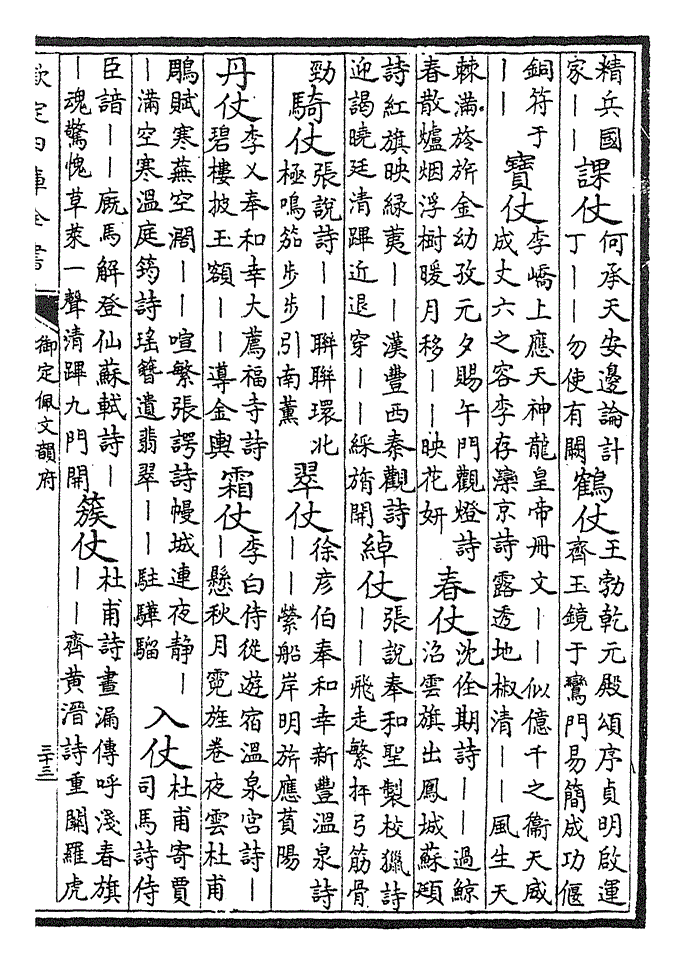 精兵國
家——
課仗
何承天安邊論計
丁——勿使有闕
鶴仗
王勃乾元殿頌序貞明啟運
齊玉鏡于鸞門易簡成功偃
銅符于
——
寶仗
李嶠上應天神龍皇帝冊文——似億千之衞天威
成丈六之容李存灤京詩露透地椒清——風生天
棘滿旍旂金幼孜元夕賜午門觀燈詩
春散爐烟浮樹暖月移——映花妍
春仗
沈佺期詩——過鯨
沼雲旗出鳳城蘇頲
詩紅旗映綠荑——漢豐西秦觀詩
迎謁曉廷清蹕近退穿——綵旓開
綽仗
張說奉和聖製校獵詩
——飛走繁抨弓筋骨
勁
騎仗
張說詩——聯聯環北
極鳴笳步步引南薰
翠仗
徐彥伯奉和幸新豐溫泉詩
——縈船岸明旂應蓂陽
丹仗
李乂奉和幸大薦福寺詩
碧樓披玉額——導金輿
霜仗
李白侍從遊宿溫泉宮詩—
—懸秋月霓旌卷夜雲杜甫
鵰賦寒蕪空濶——喧繁張諤詩幔城連夜静—
—滿空寒溫庭筠詩瑤簪遺翡翠——駐驊騮
入仗
杜甫寄賈
司馬詩侍
臣諳——廐馬解登仙蘇軾詩—
—魂驚愧草萊一聲清蹕九門開
簇仗
杜甫詩晝漏傳呼淺春旗
——齊黃溍詩重關羅虎
欽定四庫全書
御定佩文韻府
三十三